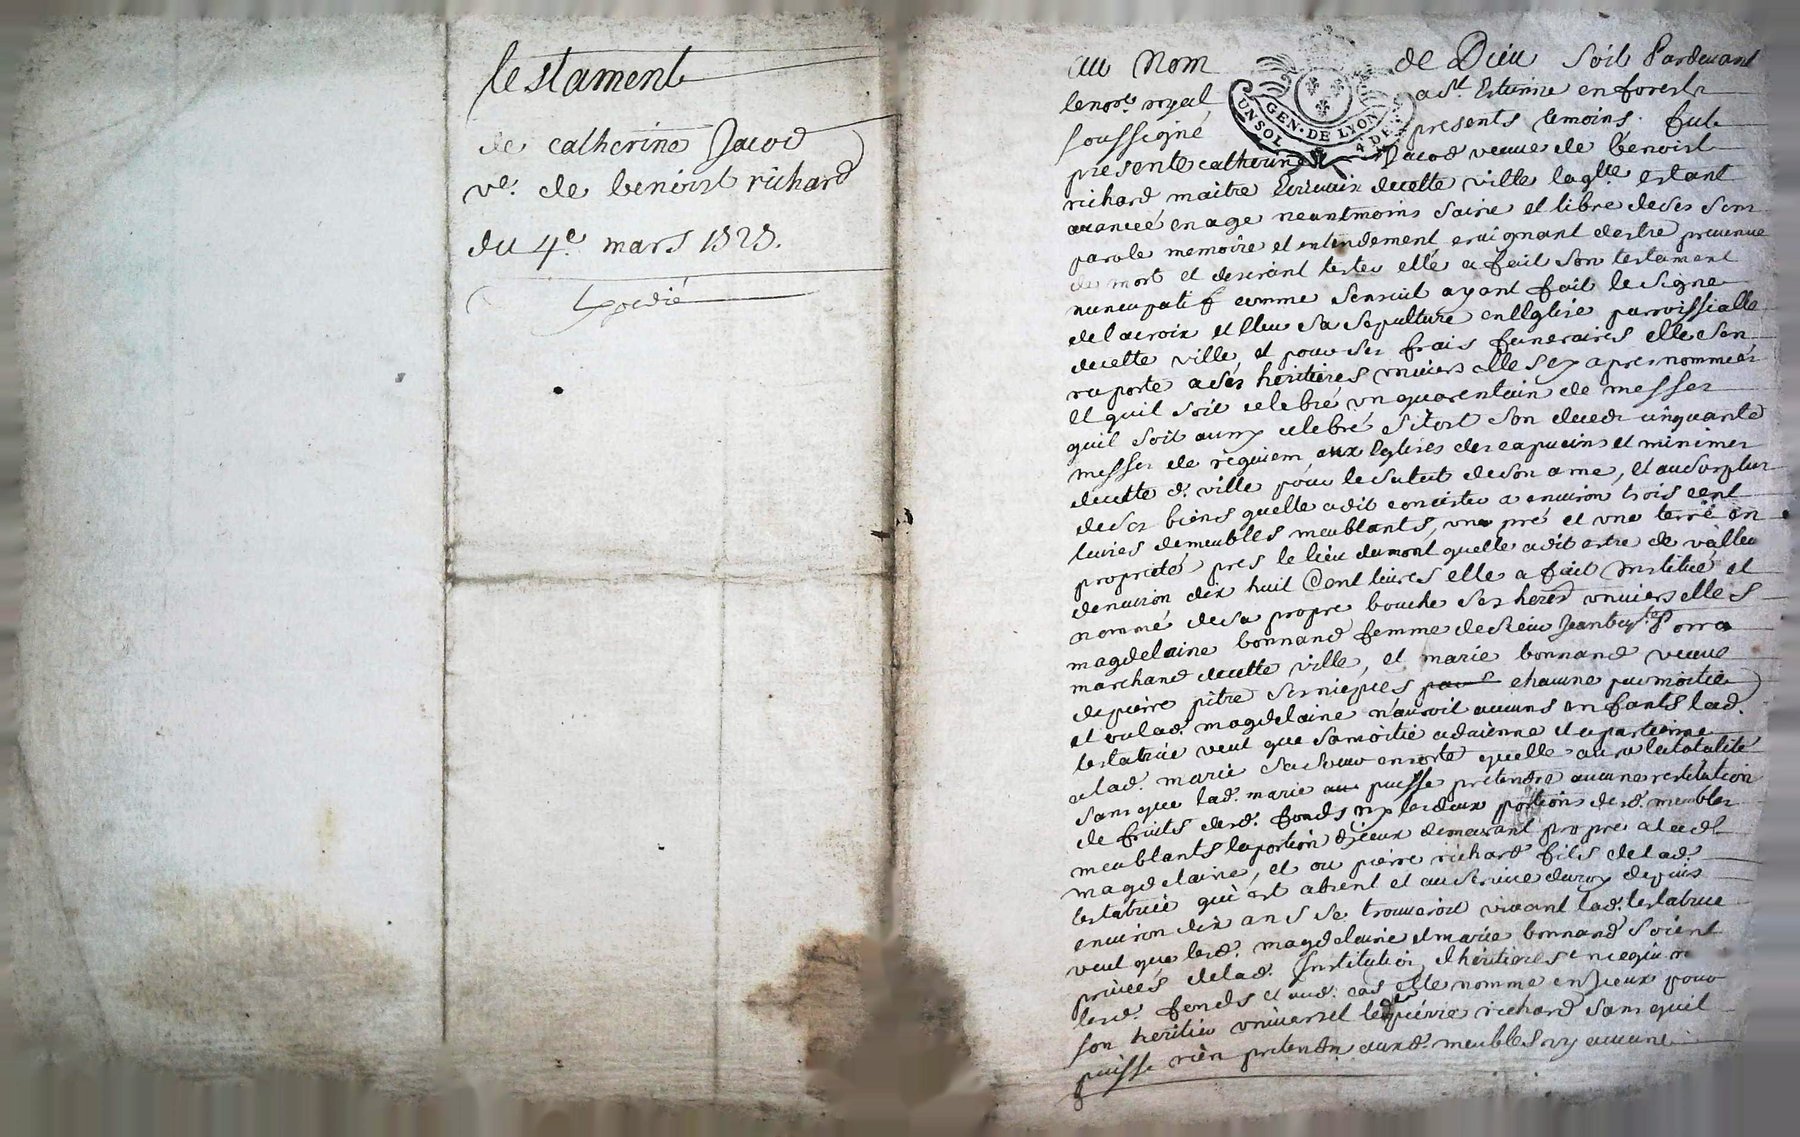 testament
de catherine Jacod
ve. de benoist richard
du 4e. mars 1323.
Expedié
au Nom de Dieu soit Pardevant
le nore. royal a St. Estienne en forest
soussigné presents temoins. fut
GEN. DE LYON
UN SOL 4 DE.
presente catherine Jacod veuve de benoist
richard maitre Ecrivain decette ville laqlle estant
avancée en age neantmoins saine et libre de ses sens
parole memoire et entendement craignant destre prevenue
de mort et desirant tester elle a fait son testament
nuncupatif comme sensuit ayant fait le signe
de la croix et Eleu sa sepulture en lEglise parroissialle
decette ville et pour ses frais funeraires elle sen
raporte a ses heritieres univers elles cy apres nommées
et quil soit celebré un quarentain de messes
quil soit aussy celebré sitost son decedz cinquante
messes de requiem aux Eglises des capucins et minimes
decette d. ville pour le salut de son ame, et au surplus
de ses biens quelle a dit concister a environ trois cent
livres de meubles meublants, un pré et une terre en
proprieté pres le lieu du mont quelle a dit estre de valleur
denviron dix huit Cent livres elle a fait institué et
nommé de sa propre bouche ses heres univers elles
magdelaine bonnand femme de sieur Jean bapte Porra
marchand decette ville, et marie bonnand veuve
de pierre pitre ses niepces chacune par moitié
et ou lad. magdelaine n'auroit aucuns enfants lad.
testatrice veut que sa moitié advienne et apartienne
a lad. marie sa soeur en sorte quelle aura la totalité
sans que lad. marie puisse pretendre aucune restitution
de fruits desd. fonds ny les deux portions desd. meubles
meublants la portion diceux demeurant propre a lad.
magdelaine, et ou pierre richard fils de lad.
testatrice qui est absent et au service du roy depuis
environ dix ans se trouveroit vivant lad. testatrice
veut que lesd. magdelaine et marie bonnand soient
privées de lad. Institution dheritieres en ce qui
lesd. fonds et aud. cas elle nomme en iceux pour
son heritier universel led. pierre richard sans quil
puisse rien pretendre auxd. meubles ny aucune